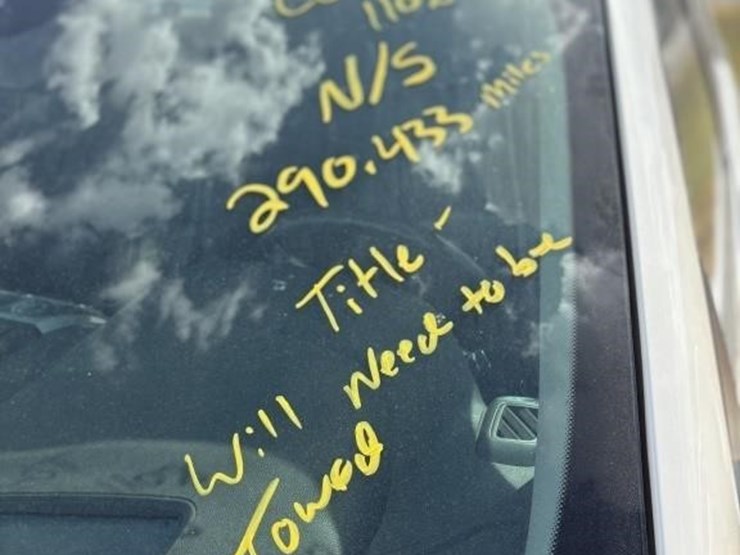 N/S
290.433 miles
Title -
Will Need to be
Towed